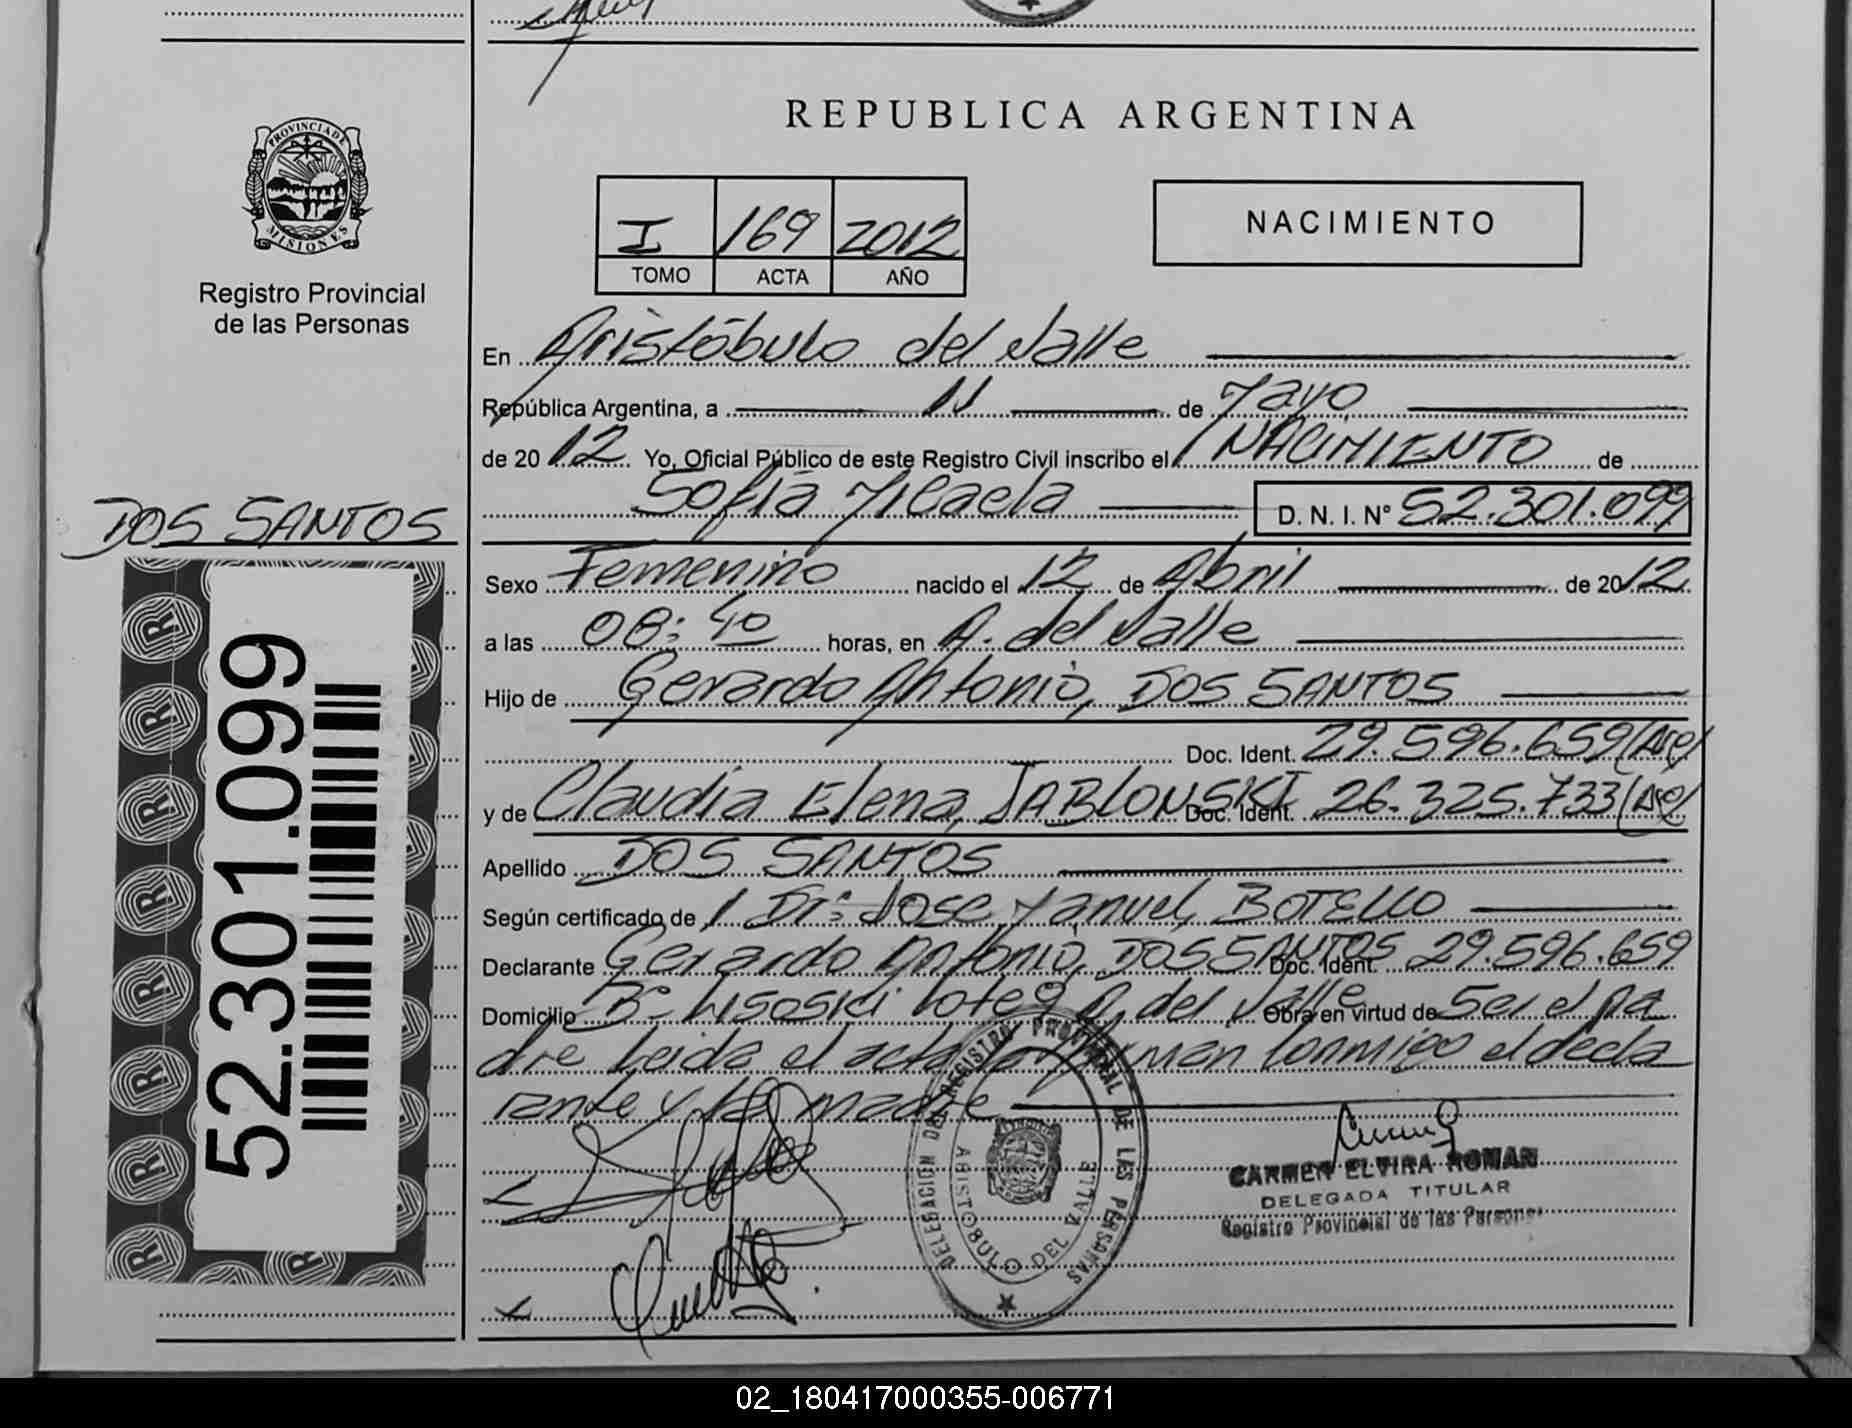 REPUBLICA ARGENTINA
PROVINCIA DE
MISIONES
Registro Provincial
de las Personas
I 169 2012
TOMO ACTA AÑO
NACIMIENTO
En Aristóbulo del Valle
República Argentina, a 11 de Mayo
de 2012 Yo, Oficial Público de este Registro Civil inscribo el NACIMIENTO de
Sofía Micaela D. N. I. N° 52.301.099
DOS SANTOS
52.301.099
Sexo Femenino nacido el 12 de Abril de 2012
a las 08:40 horas, en A. del Valle
Hijo de Gerardo Antonio, DOS SANTOS
Doc. Ident. 29.596.659 (Arg)
y de Claudia Elena, JABLONSKI Doc. Ident. 26.325.733 (Arg)
Apellido DOS SANTOS
Según certificado de Dr: Jose Manuel, BOTELLO
Declarante Gerardo Antonio, DOS SANTOS Doc. Ident. 29.596.659
Domicilio B° Lote 9 A. del Valle Obra en virtud de Ser el pa
dre Leida el acta la firman Conmigo el decla
rante y la madre
DELEGACION DEL REGISTRO PROVINCIAL DE LAS PERSONAS
ARISTOBULO DEL VALLE
CARMEN ELVIRA ROMAN
DELEGADA TITULAR
Registro Provincial de las Personas
02_180417000355-006771